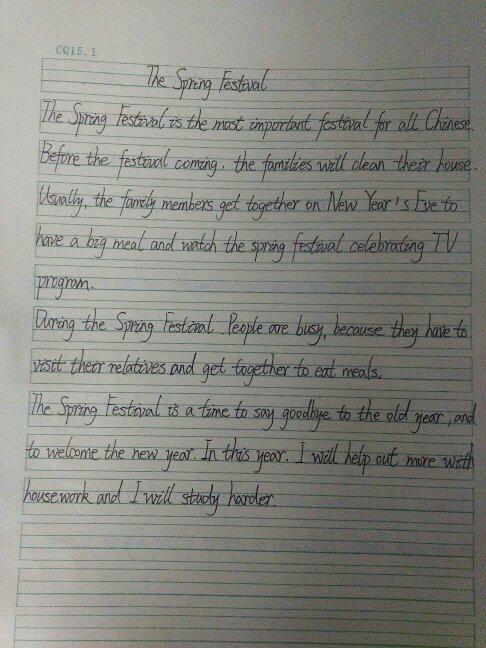 CQ15.1
The Spring Festival
The Spring Festival is the most important festival for all Chinese.
Before the festival coming, the families will clean their house.
Usually, the family members get together on New Year's Eve to
have a big meal and watch the spring festival celebrating TV
program.
During the Spring Festival. People are busy, because they have to
visit their relatives and get together to eat meals.
The Spring Festival is a time to say goodbye to the old year, and
to welcome the new year. In this year. I will help out more with
housework and I will study harder.